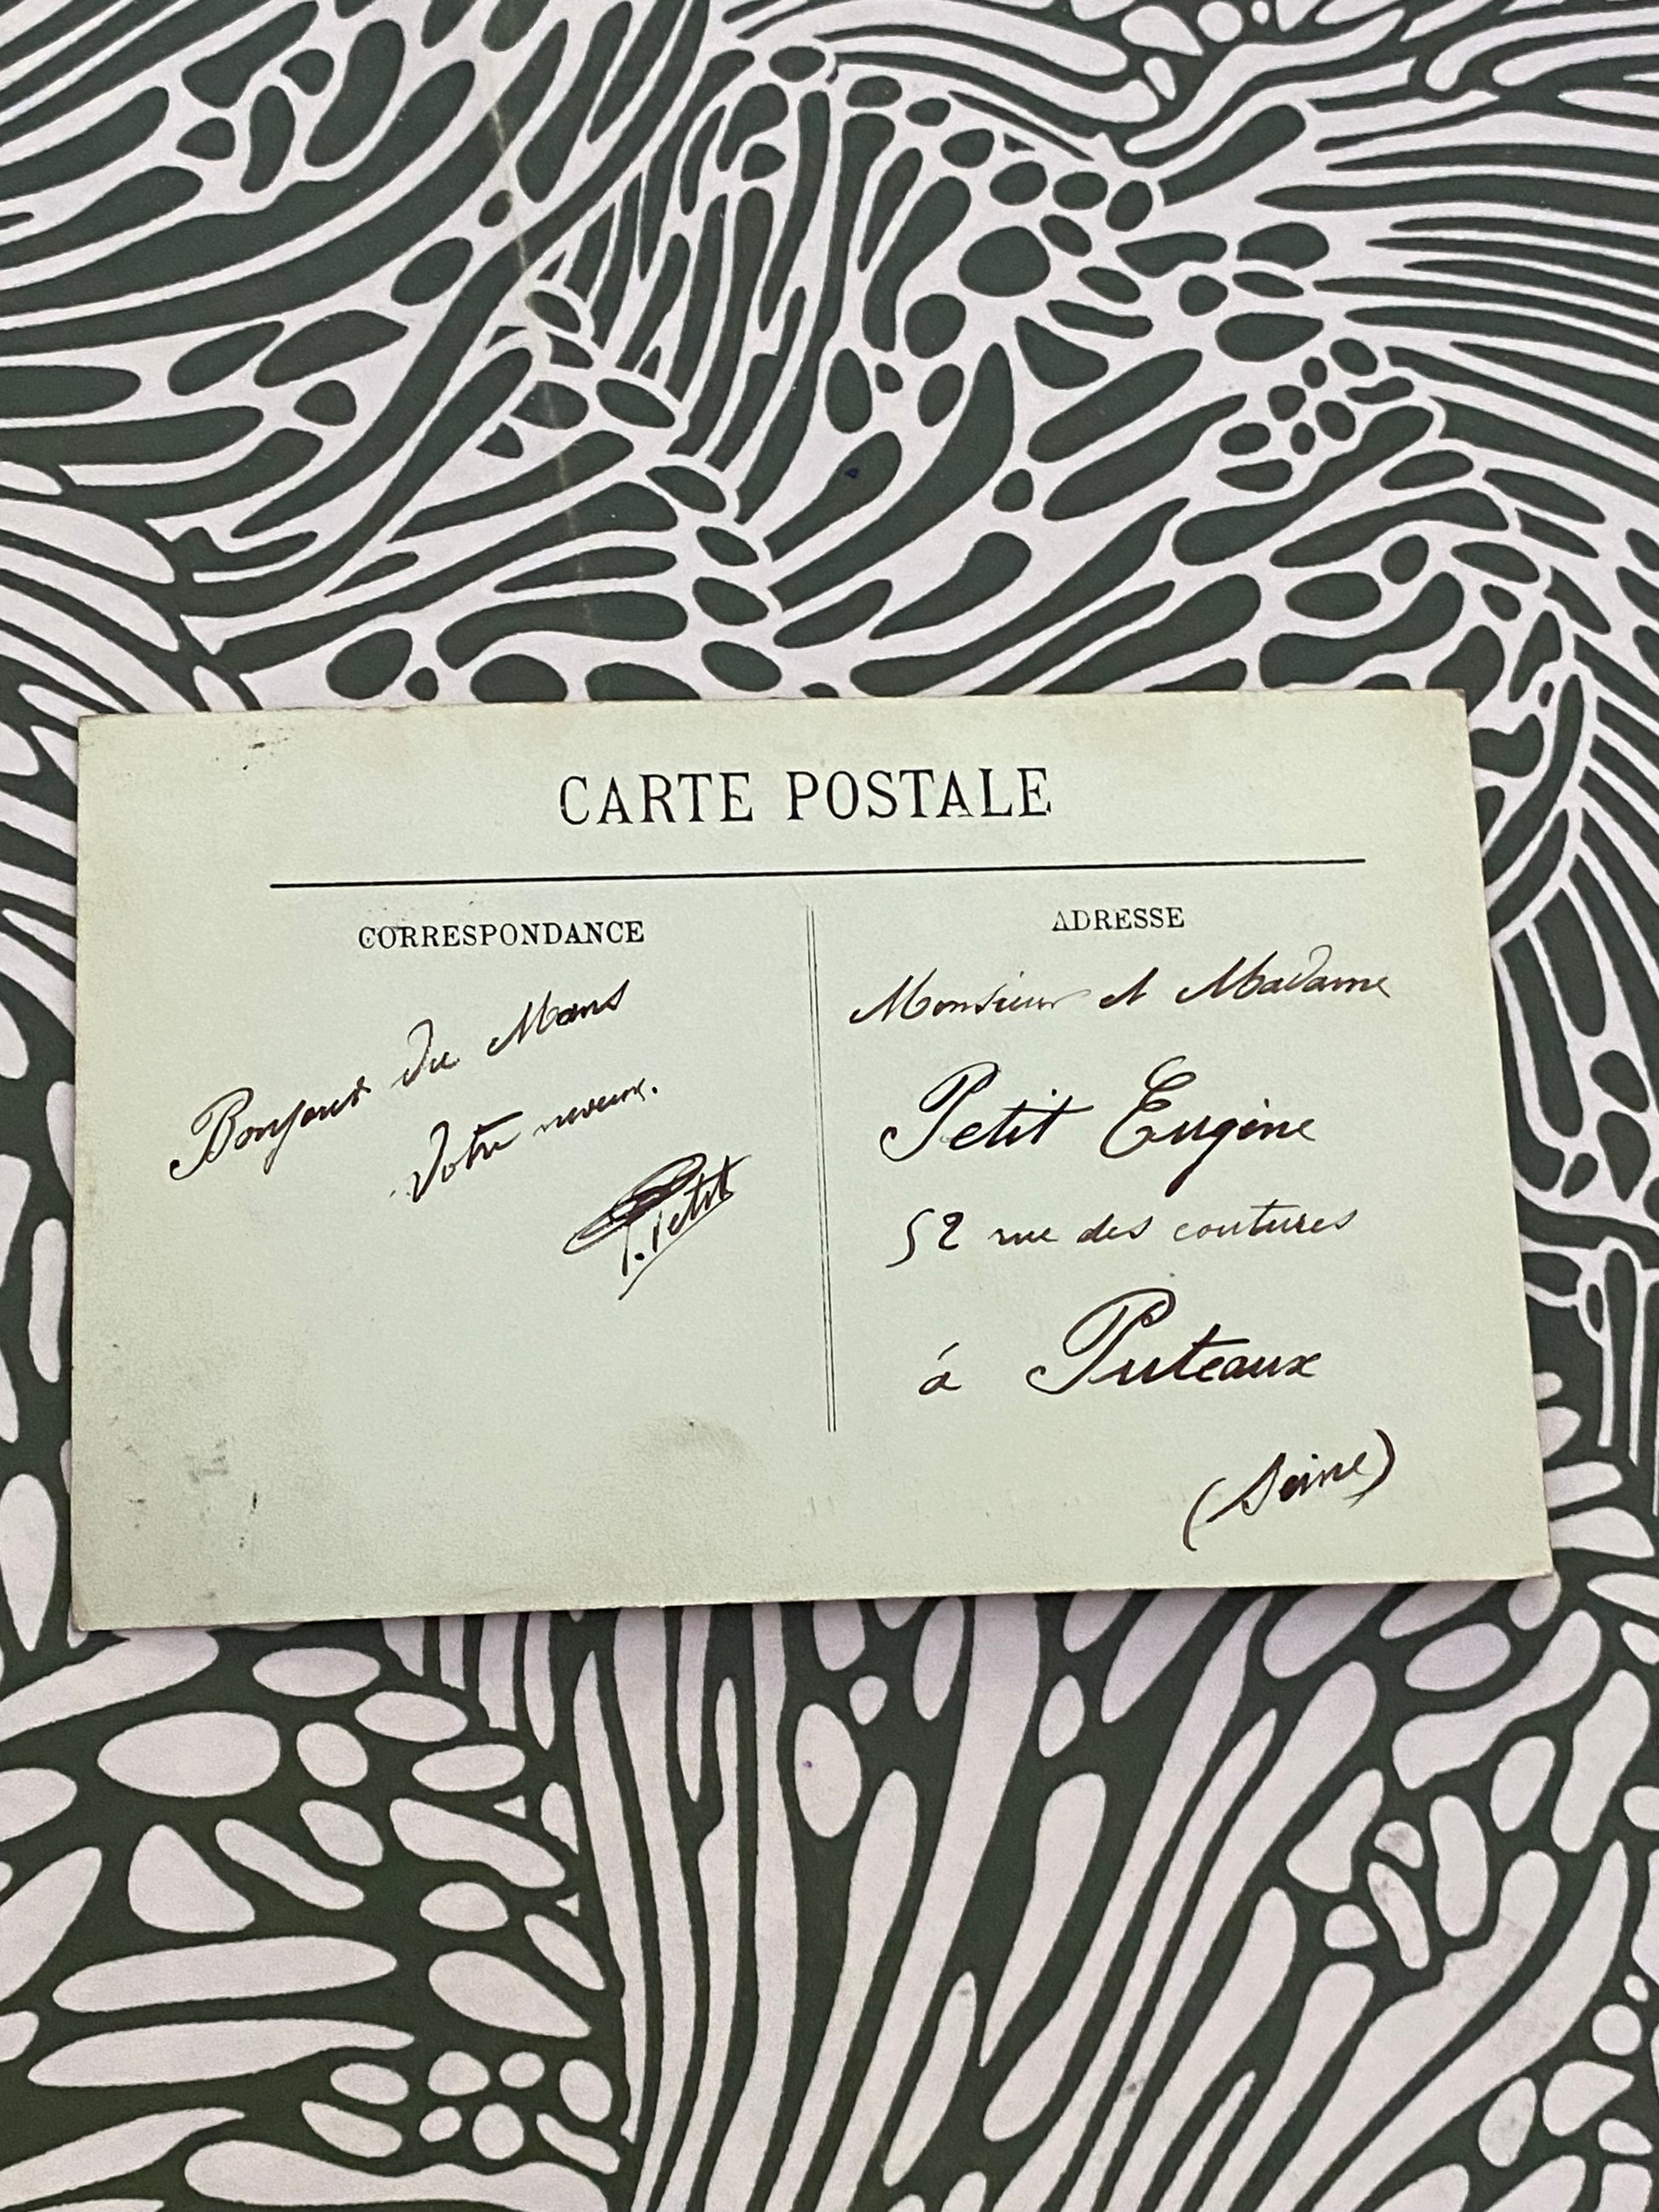 CARTE POSTALE
CORRESPONDANCE
Bonjour du Mans
Votre neveu.
P. Petit
ADRESSE
Monsieur et Madame
Petit Eugène
52 rue des coutures
à Puteaux
(Seine)